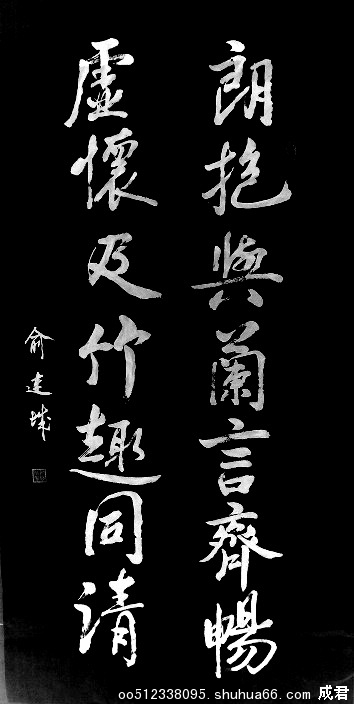 朗抱與蘭言齊暢
虛懷及竹趣同請
俞建城
oo512338095.shuhua66.com 成君